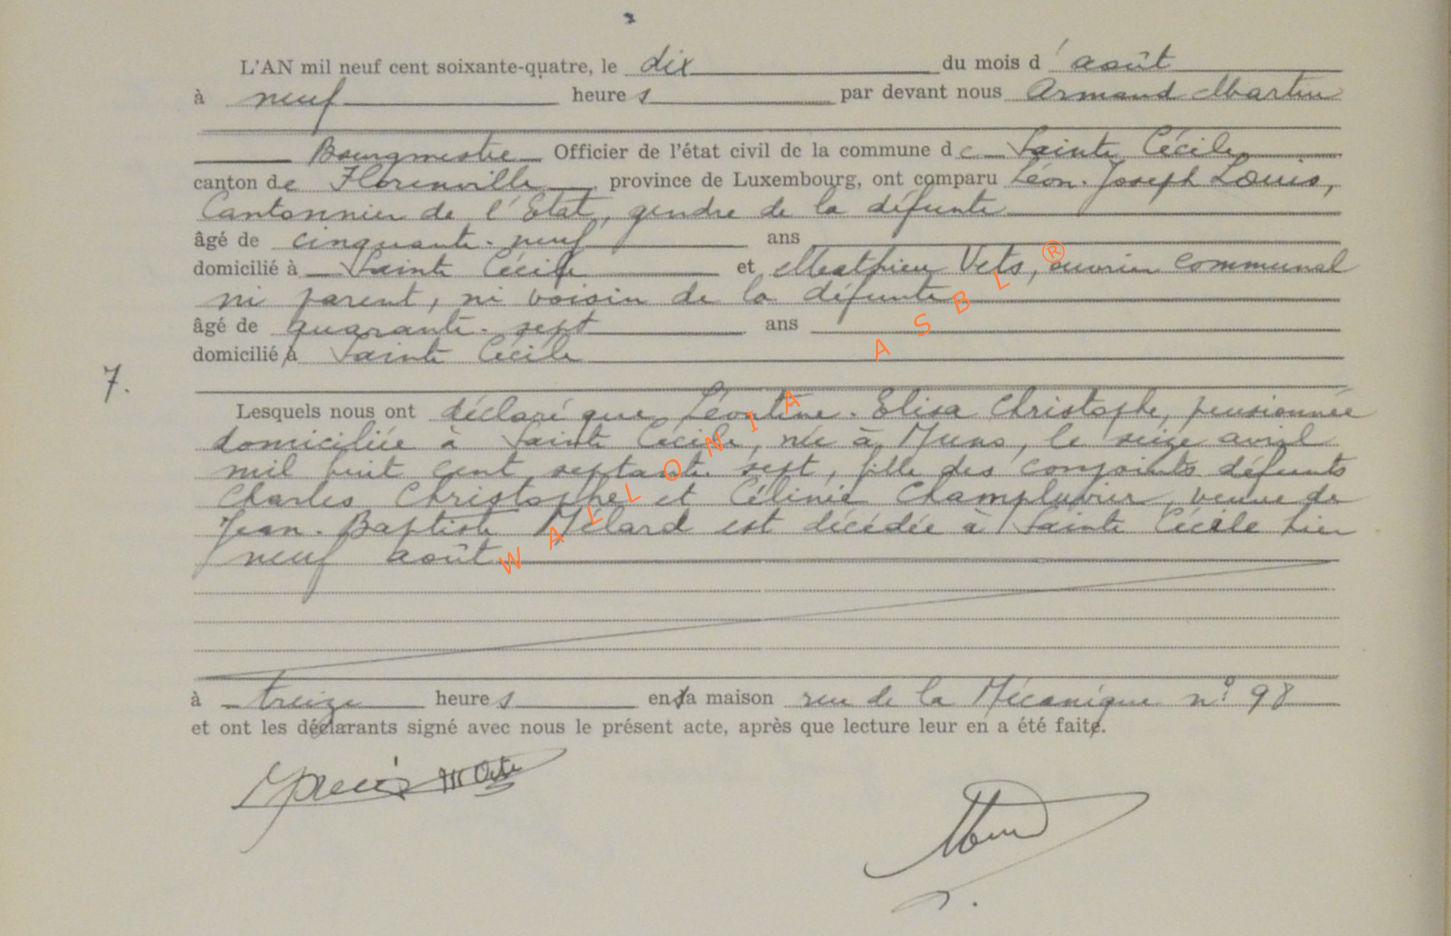 L'AN mil neuf cent soixante-quatre, le dix du mois d'août
à neuf heures par devant nous Armand Martin
Bourgmestre Officier de l'état civil de la commune de Sainte Cécile
canton de Florenville, province de Luxembourg, ont comparu Léon-Joseph Louis,
Cantonnier de l'Etat, gendre de la défunte
âgé de cinquante-neuf ans
domicilié à Sainte Cécile et Mathieu Vets, ouvrier communal
ni parent, ni voisin de la défunte
âgé de quarante-sept ans
domicilié à Sainte Cécile
7.
Lesquels nous ont déclaré que Léontine-Elisa Christophe, pensionnée
domiciliée à Sainte Cécile, née à Muno, le seize avril
mil huit cent septante-sept, fille des conjoints défunts
Charles Christophe et Célinie Champluvier, veuve de
Jean-Baptiste Mélard est décédée à Sainte Cécile hier
neuf août
à treize heures en sa maison rue de la Mécanique n° 98
et ont les déclarants signé avec nous le présent acte, après que lecture leur en a été faite.
WALLONIA ASBL ®